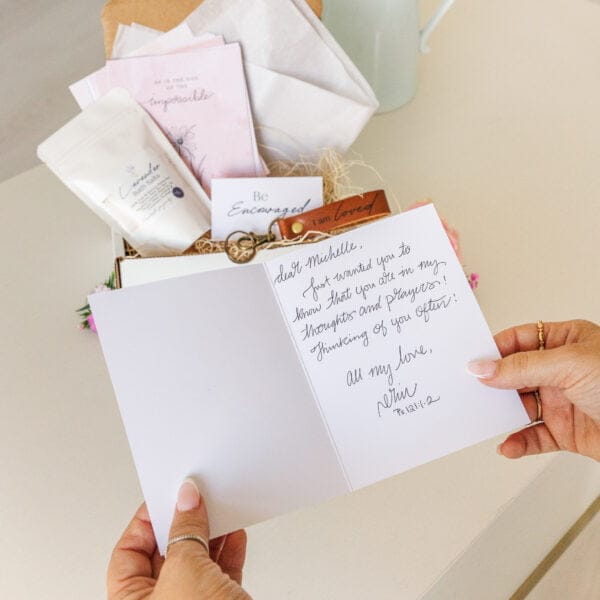 HE IS THE GOD
OF THE
impossible
Lavender
Bath Salts
Be
Encouraged
I am Loved
dear Michelle,
Just wanted you to
know that you are in my
thoughts and prayers!
Thinking of you often!
all my love,
Erin
Ps 121:1-2